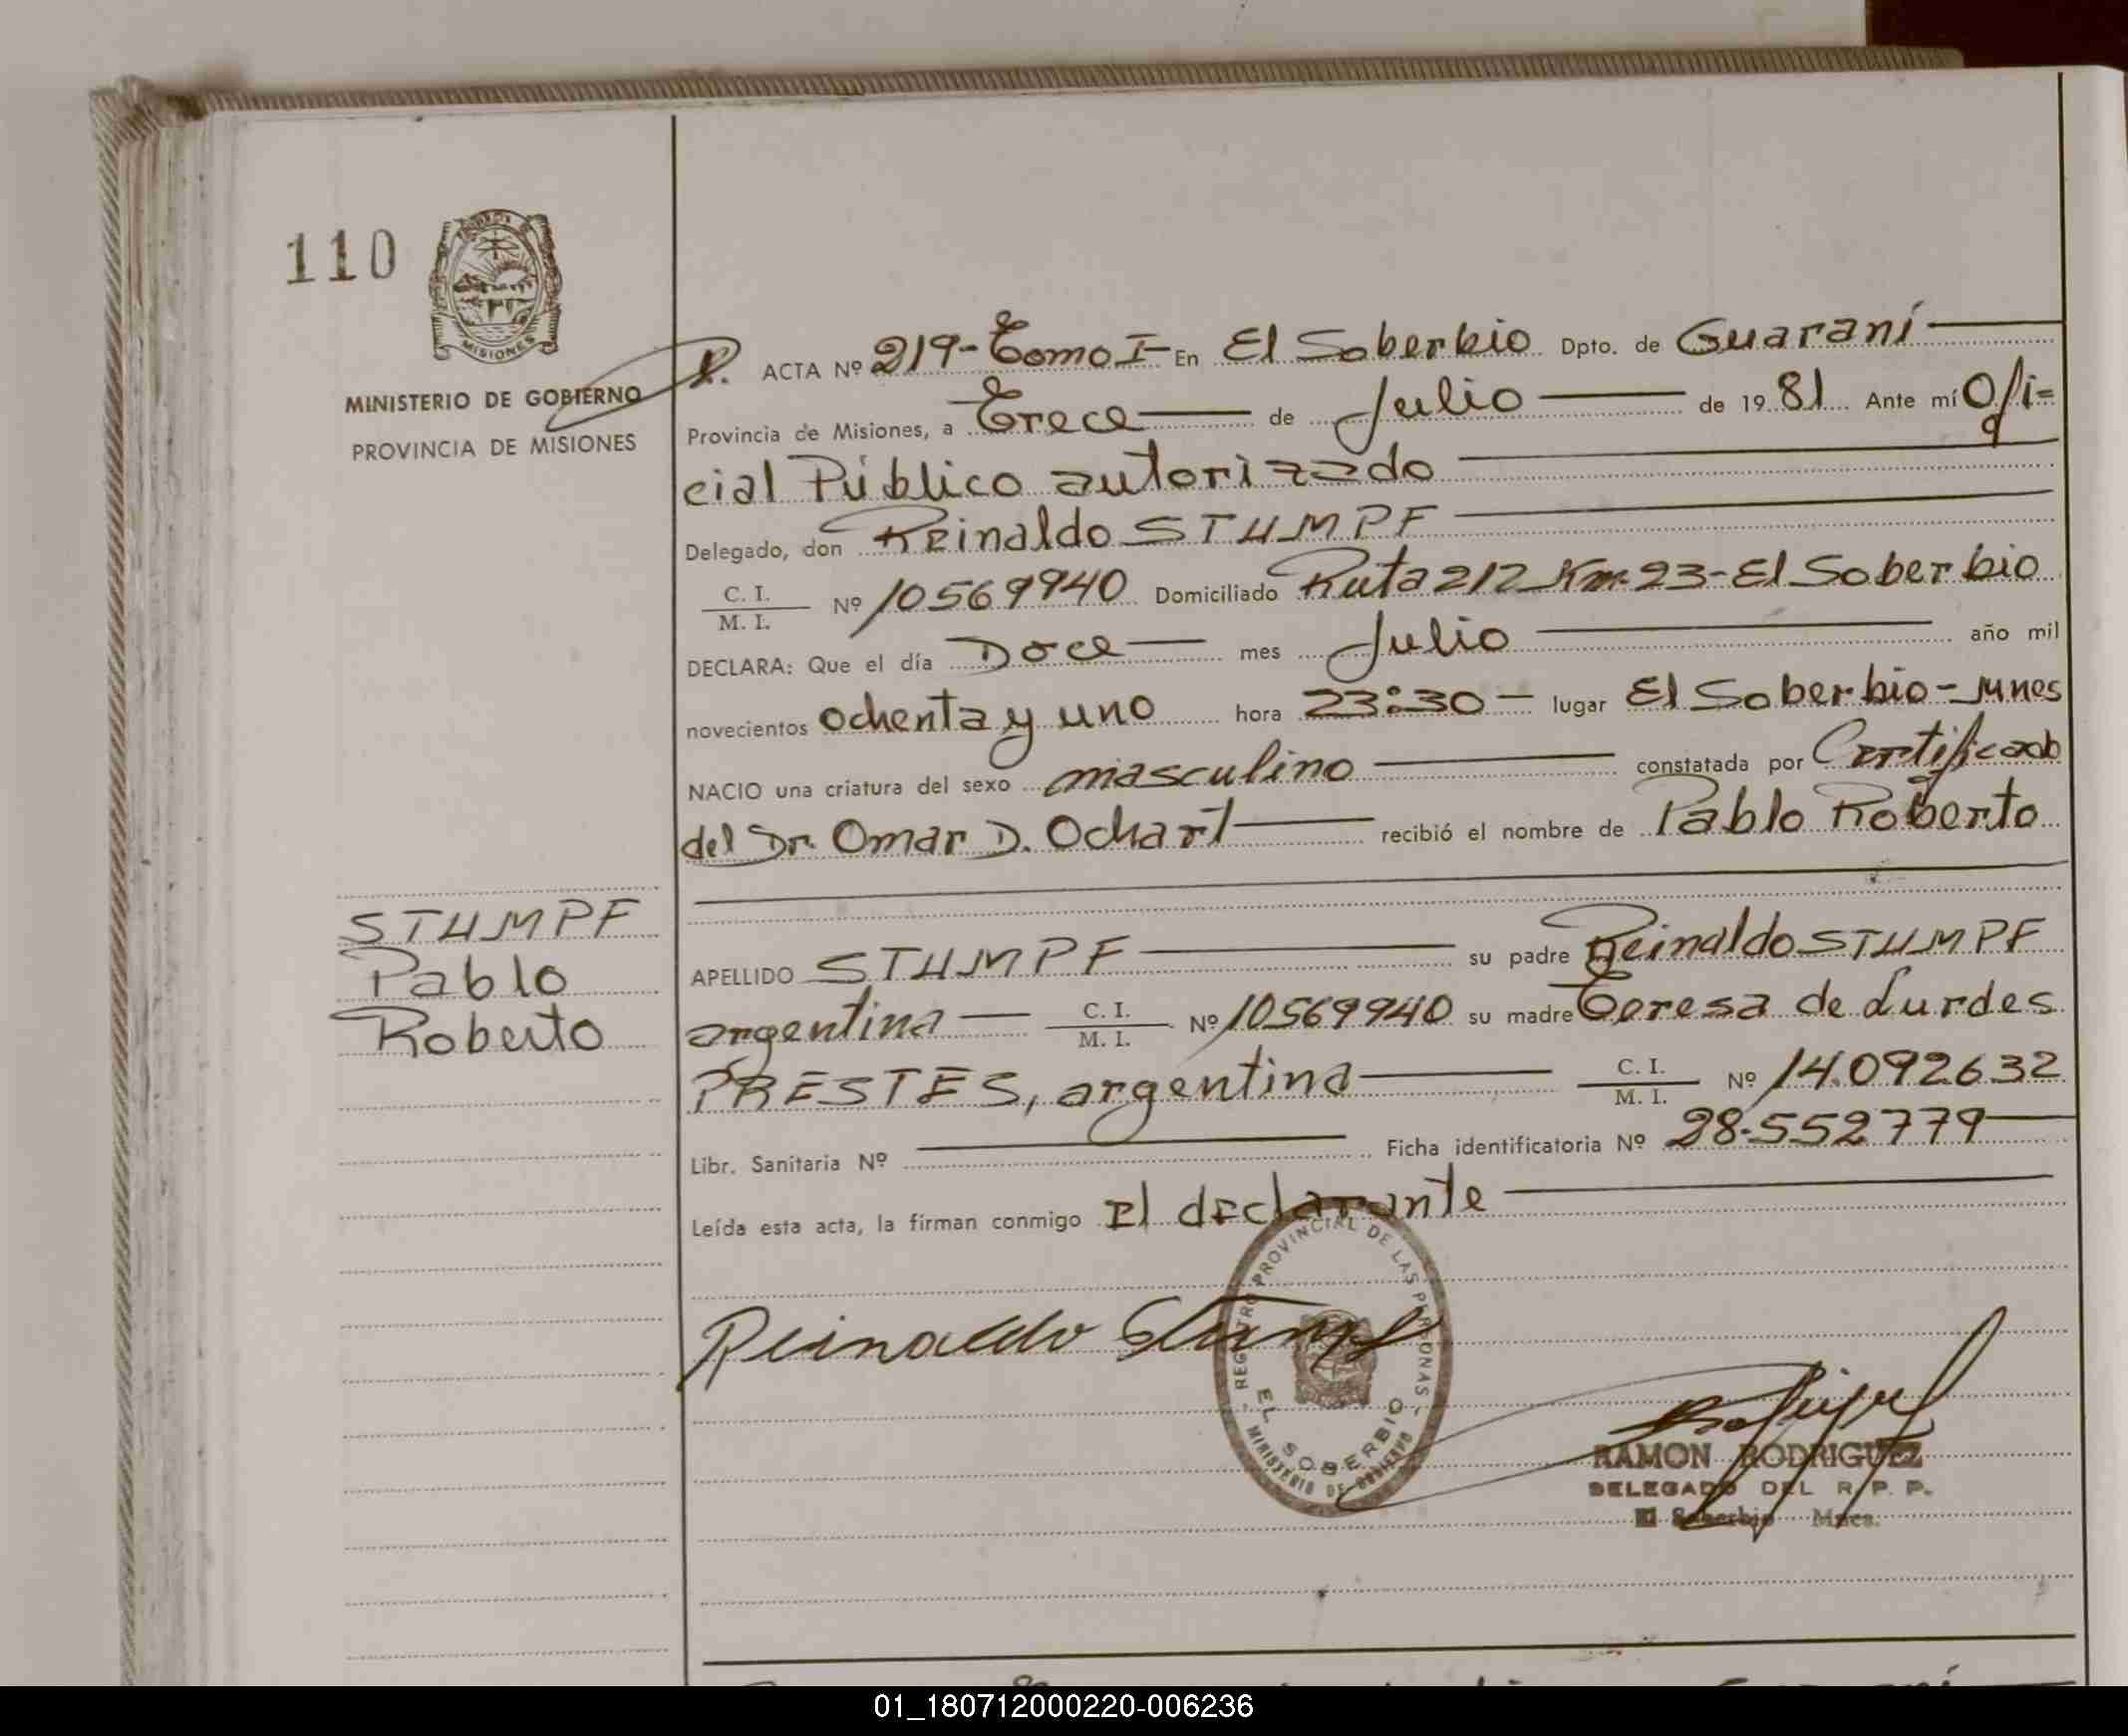 110
MISIONES
MINISTERIO DE GOBIERNO
PROVINCIA DE MISIONES
ACTA Nº 219-Tomo I- En El Soberbio Dpto. de Guaraní
Provincia de Misiones, a Trece de Julio de 1981 Ante mí Ofi=
cial Público autorizado
Delegado, don Reinaldo STUMPF
C. I.
M. I. Nº 10569940 Domiciliado Ruta 212 Km. 23-El Soberbio
DECLARA: Que el día Doce mes Julio año mil
novecientos ochenta y uno hora 23:30 lugar El Soberbio-Mnes
NACIO una criatura del sexo masculino constatada por Certificado
del Dr. Omar D. Ochart recibió el nombre de Pablo Roberto
STUMPF
Pablo
Roberto
APELLIDO STUMPF su padre Reinaldo STUMPF
argentina C. I. M. I. Nº 10569940 su madre Teresa de Lurdes
PRESTES, argentina C. I. M. I. Nº 14.092632
Libr. Sanitaria Nº Ficha identificatoria Nº 28.552779
Leída esta acta, la firman conmigo El declarante
REGISTRO PROVINCIAL DE LAS PERSONAS
EL SOBERBIO
MINISTERIO DE GOBIERNO
Reinaldo Stumpf
RAMON RODRIGUEZ
DELEGADO DEL R. P. P.
El Soberbio Mnes.
01_180712000220-006236